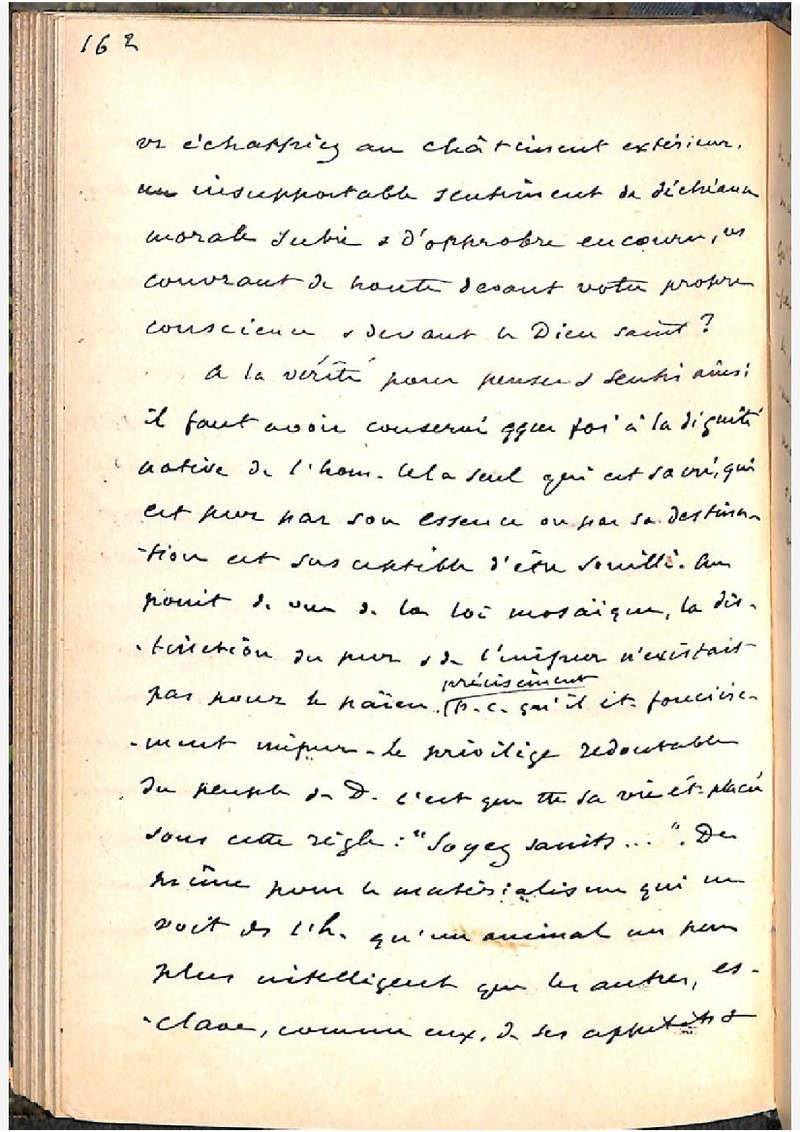 162
vs échappiez au châtiment extérieur,
un insupportable sentiment de déchéance
morale subie & d'opprobre encouru, vs
couvrant de honte devant votre propre
conscience & devant le Dieu saint?
A la vérité pour penser & sentir ainsi
il faut avoir conservé qque foi à la dignité
native de l'hom. Cela seul qui est sacré, qui
est pur par son essence ou par sa destina-
-tion est susceptible d'être souillé. Au
point de vue de la loi mosaïque, la dis-
-tinction du pur & de l'impur n'existait
précisément
pas pour le païen (p. c. qu'il ét. foncière-
-ment impur - le privilège redoutable
du peuple de D. c'est que tte sa vie ét. placée
sous cette règle: "Soyez saints...". De
même pour le matérialisme qui ne
voit ds l'h. qu'un animal un peu
plus intelligent que les autres, es-
-clave, comme eux, de ses appétits &